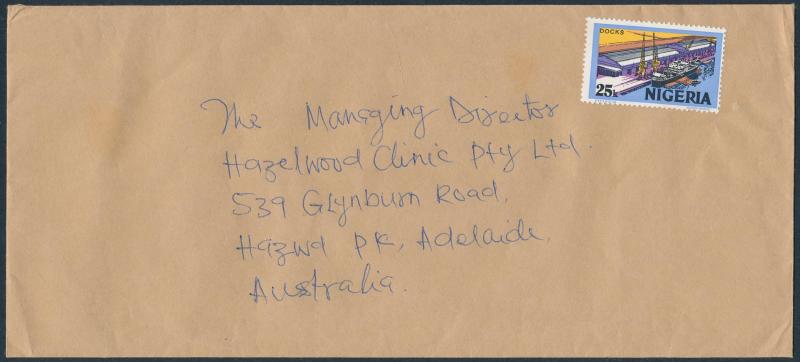 DOCKS
25k
NIGERIA
The Managing Director
Hazelwood Clinic Pty Ltd.
539 Glynburn Road,
Hazwd PK, Adelaide,
Australia.